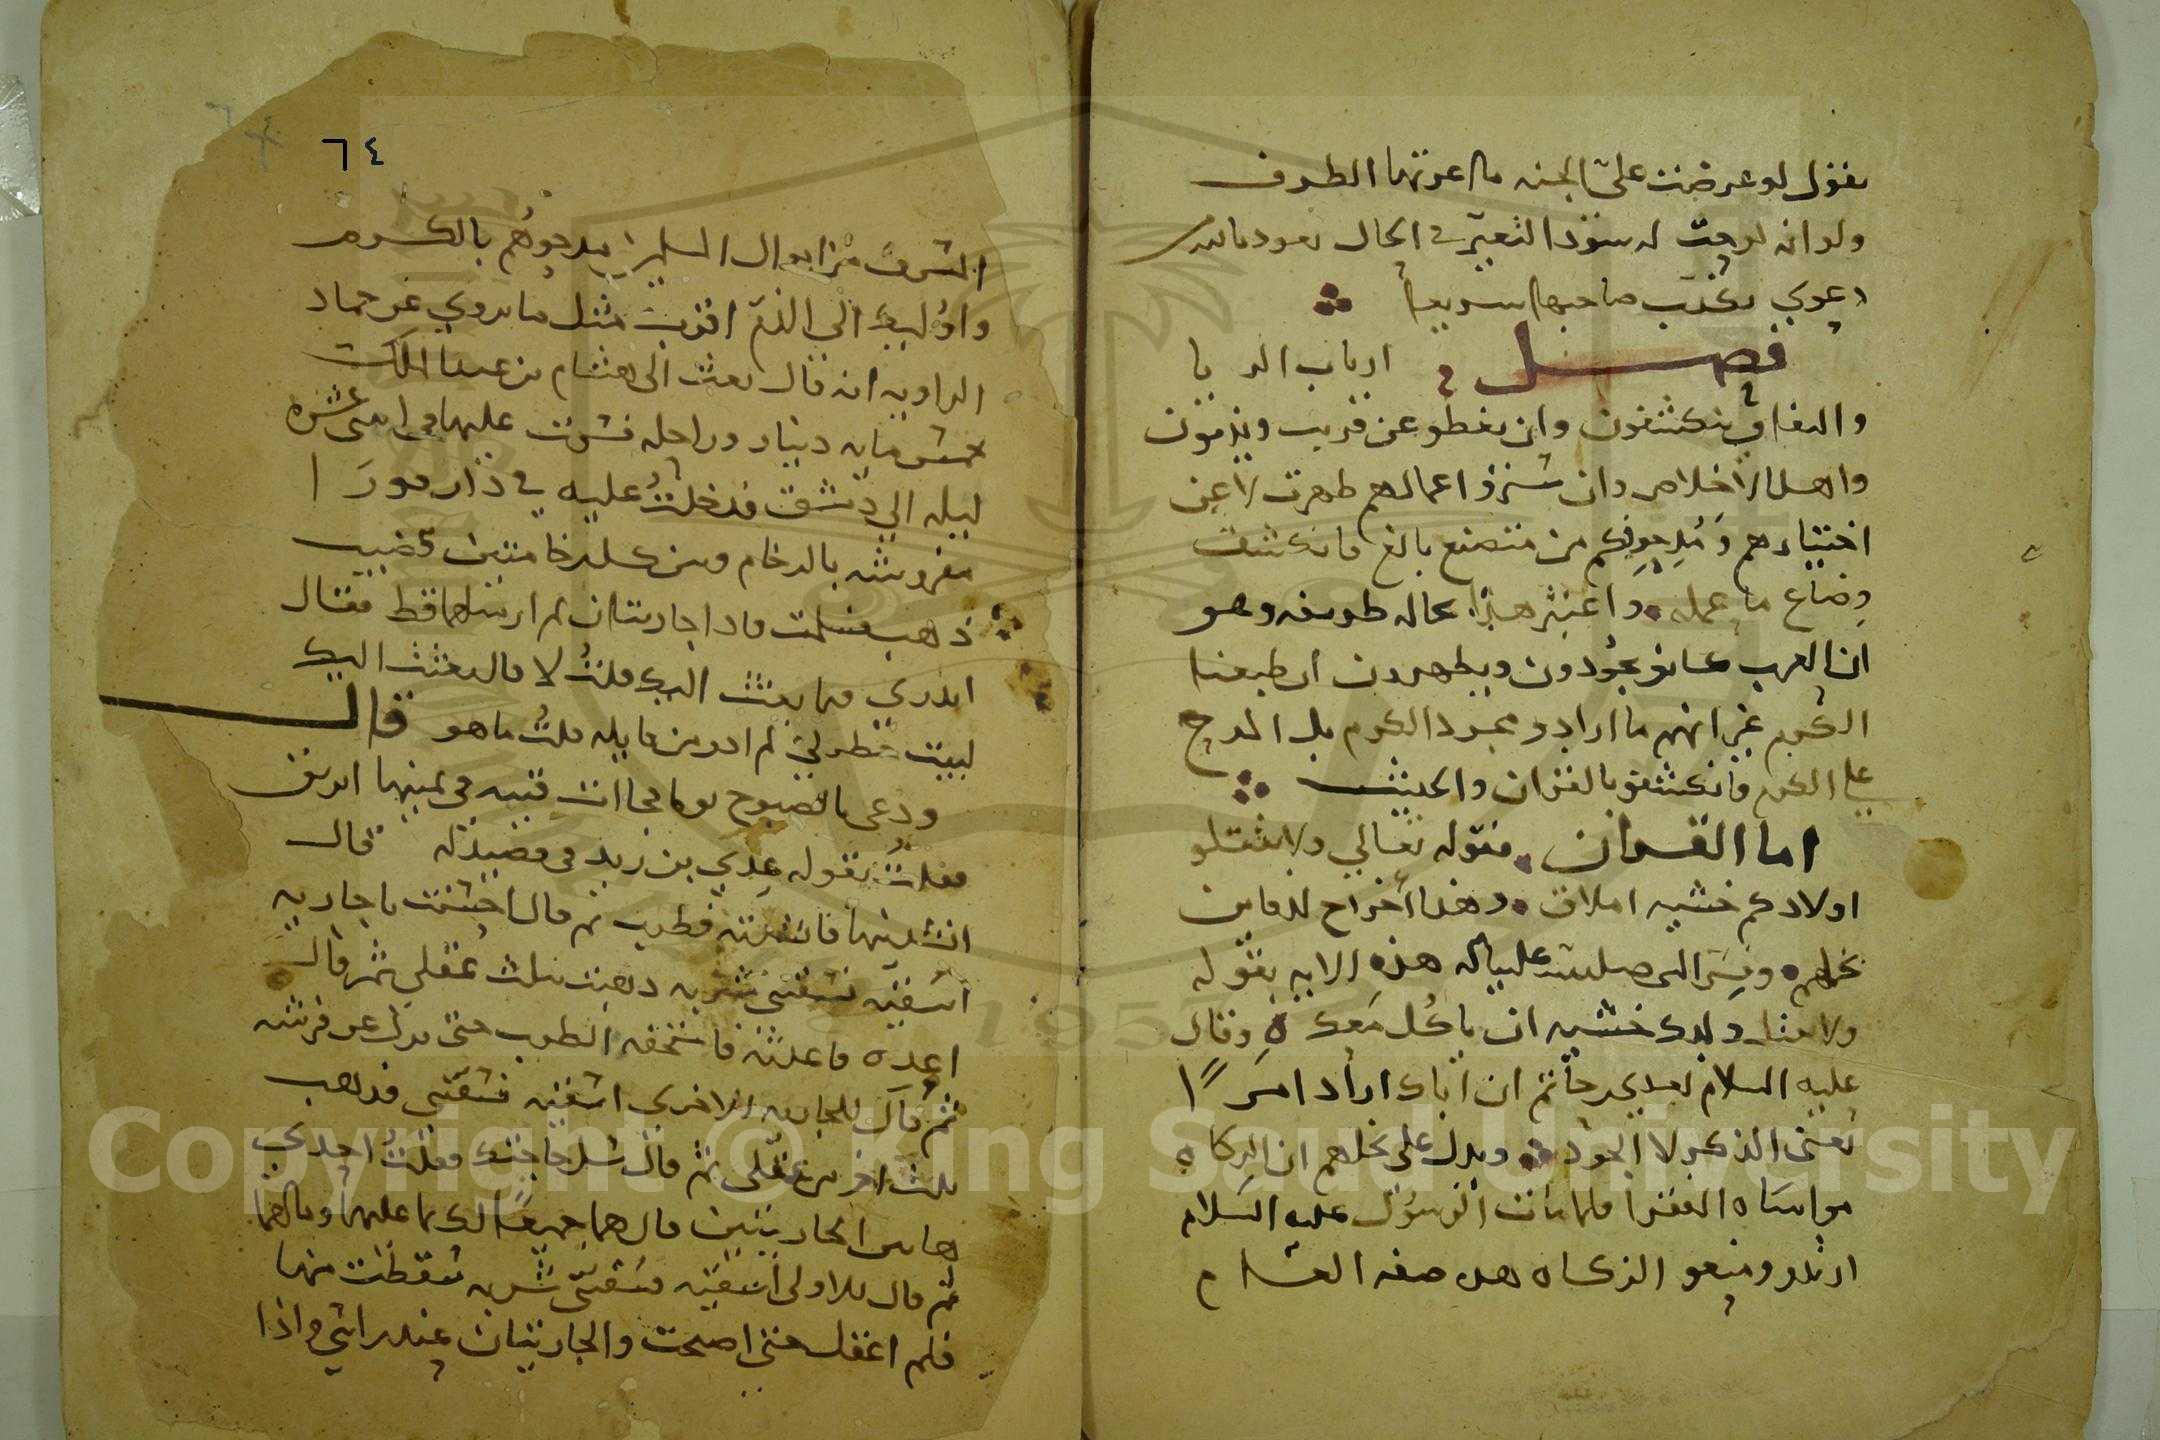 يقول لو عرضت علي الجنه ما عرتها الطرف
ولو انه لو له سنور لتغير في الحال نعوذ بالله من
دعوي يكذب صاحبها سريعا
فصل ارباب الريا
والنفاق ينكشفون وان يغطو عن قريب ويذمون
واهل الاخلاص وان ستروا اعمالهم ظهرت لا عن
اختيارهم ومدحو فكم من متصنع بالغ فانكشف
وضاع ما عمله واعتبر هذا بحاله طريفه وهو
ان العرب كانو يجودون ويظهرون ان طبعنا
الكرم غير انهم ما ارادو مجرد الكرم بل المدح
علي الكرم فانكشفو بالقران والحديث
اما القران فقوله تعالي ولا تقتلو
اولادكم خشيه املاق وهذا اخراج لدفاين
بخلهم وفسر النبي صلى الله عليه هذه الايه بقوله
ولا تقتل ولدك خشيه ان ياكل معك وقال
عليه السلام لعدي بن حاتم ان اباك اراد امرًا
يعني الذكر لا الجود ويدل علي بخلهم ان الزكاه
مواساه الفقرا فلما مات الرسول عليه السلام
ارتدو ومنعو الزكاه هذه صفه العام
٦٤
الشرف من اموال السلاطين يمدحوهم بالكرم
واوليك الي الذم اقرب مثل ما يروي عن حماد
الراويه انه قال بعث الي هشام بن عبد الملك
خمس مايه دينار وراحله فسرت عليها في اثني عشره
ليله الي دمشق فدخلت عليه في دار قورا
مفروشه بالرخام وبين كل رخامتين قضيب
ذهب فسلمت فاذا جاريتان لم ار مثلهما قط فقال
اتدري فيما بعثت اليك قلت لا قال بعثت اليك
لبيت خطر لي لم ادر من قايله قلت ما هو قال
ودعي بالصبوح يوما فجاات قينه في يمينها ابريق
فقلت يقوله عدي بن زيد في قصيدة له قال
انشدنيها فانشدته فطرب ثم قال احسنت يا جاريه
اسقيه فسقتني شربه ذهبت بثلث عقلي ثم قال
اعده فاعدته فاستخفه الطرب حتى نزل عن فرشه
ثم قال للجاريه الاخري اسقيه فسقتني فذهب
ثلث اخر من عقلي ثم قال سل حاجتك فقلت احدي
هاتين الجاريتين قال هما جميعًا لك بما عليهما وما لهما
ثم قال للاولى اسقيه فسقتني شربه سقطت منها
فلم اعقل حتى اصبحت والجاريتان عند راسي واذا